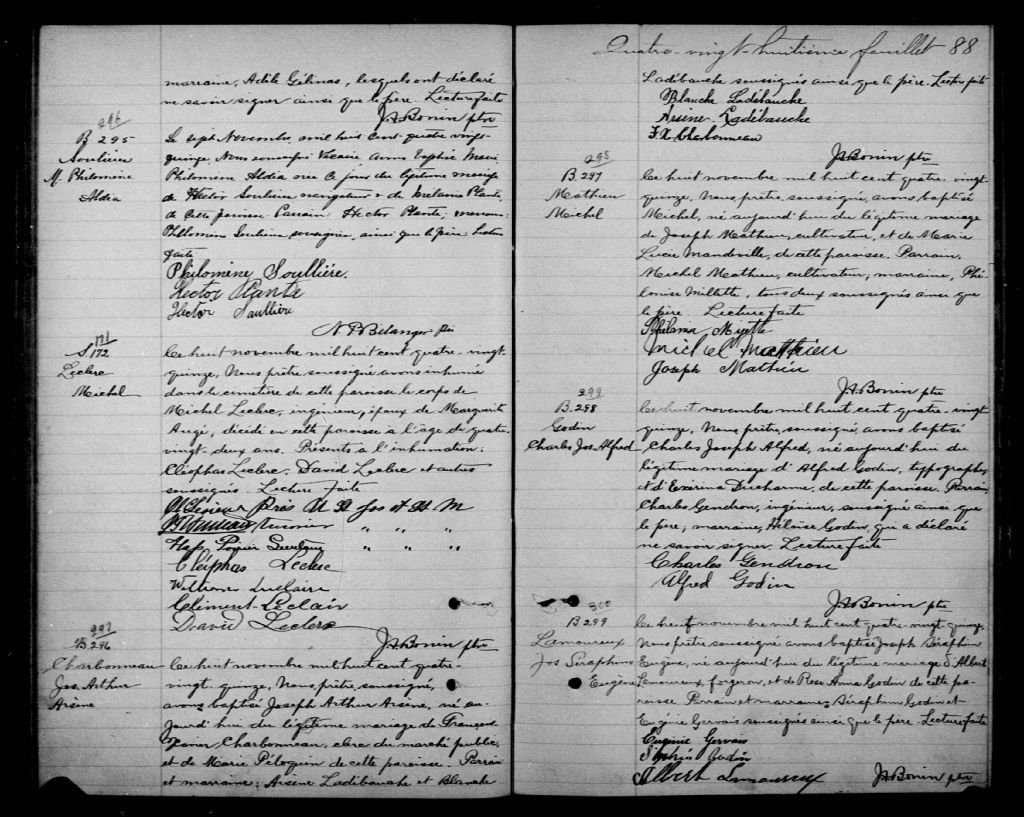 marraine, Adèle Gélinas, lesquels ont déclaré
ne savoir signer ainsi que le père. Lecture faite
JA Bonin ptre
296
B 295
Soulières
M. Philomène
Aldéa
Le sept Novembre mil huit cent quatre vingt-
quinze, Nous soussigné Vicaire avons baptisé Marie
Philomène Aldéa née ce jour du légitime mariage
de Hector Soulière navigateur & de Mélanie Plante,
de cette paroisse Parrain: Hector Plante; marraine:
Philomène Soulière soussignée, ainsi que le père. Lecture
faite
Philomène Soullière.
Hector Plante
Hector Soullière
Bélanger ptre
171
S 172
Leclerc
Michel
Ce huit novembre mil huit cent quatre-vingt-
quinze, Nous prêtre soussigné avons inhumé
dans le cimetière de cette paroisse le corps de
Michel Leclerc, ingénieur, époux de Marguerite
Augé, décédé en cette paroisse à l'âge de quatre-
vingt-deux ans. Présents à l'inhumation:
Cléophas Leclerc, David Leclerc et autres
soussignés. Lecture faite
Prés U St Jos et St M
" " "
Poirier " " "
Cléiphas Leclerc
William Leclaire
Climent Leclair
David Leclerc
JA Bonin ptre
297
B. 296
Charbonneau
Jos. Arthur
Arsène
Ce huit novembre mil huit cent quatre-
vingt-quinze, Nous prêtre, soussigné,
avons baptisé Joseph Arthur Arsène, né au-
jourd'hui du légitime mariage de François
Xavier Charbonneau, clerc du marché public,
et de Marie Péloquin de cette paroisse. Parrain
et marraine; Arsène Ladébauche et Blanche
Quatre-vingt-huitième feuillet 88
Ladébauche soussignés ainsi que le père. Lecture faite
Blanche Ladébauche
Arsène Ladébauche
F. X. Charbonneau
JA Bonin ptre
298
B. 297
Mathieu
Michel
Ce huit novembre mil huit cent quatre-vingt-
quinze, Nous prêtre, soussigné, avons baptisé
Michel, né aujourd'hui du légitime mariage
de Joseph Mathieu, cultivateur, et de Marie
Lucie Mandville, de cette paroisse. Parrain,
Michel Mathieu, cultivateur, marraine, Phé-
lonise Millette, tous deux soussignés ainsi que
le père Lecture faite
Miyette
Michel Matthieu
Joseph Mathieu
JA Bonin ptre
299
B. 298
Godin
Charles Jos. Alfred
Ce huit novembre mil huit cent quatre-vingt
quinze, Nous prêtre, soussigné, avons baptisé
Charles Joseph Alfred, né aujourd'hui du
légitime mariage d'Alfred Godin, typographe,
et d'Exérina Ducharme, de cette paroisse. Parrain,
Charles Gendron, ingénieur, soussigné ainsi que
le père; marraine, Héloïse Godin, qui a déclaré
ne savoir signer. Lecture faite
Charles Gendron
Alfred Godin
JA Bonin ptre
300
B 299
Lamoureux
Jos Séraphin
Eugène
Ce neuf novembre mil huit cent quatre-vingt quinze,
Nous prêtre soussigné avons baptisé Joseph Séraphin
Eugène, né aujourd'hui du légitime mariage d'Albert
Lamoureux, forgeron, et de Rose Anna Godin de cette pa-
roisse. Parrain et marraine; Séraphin Godin et
Eugénie Gervais soussignés ainsi que le père. Lecture faite
Eugénie Gervais
Godin
Albert Lamoureux
JA Bonin ptre